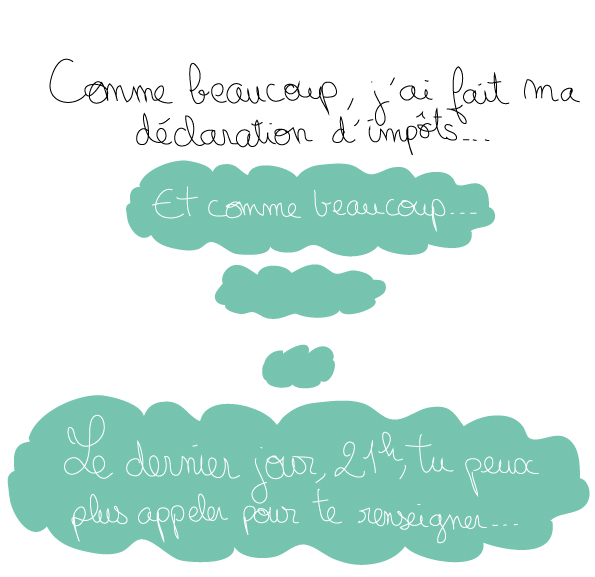 Comme beaucoup, j'ai fait ma
déclaration d'impôts...
Et comme beaucoup...
Le dernier jour, 21h, tu peux
plus appeler pour te renseigner...